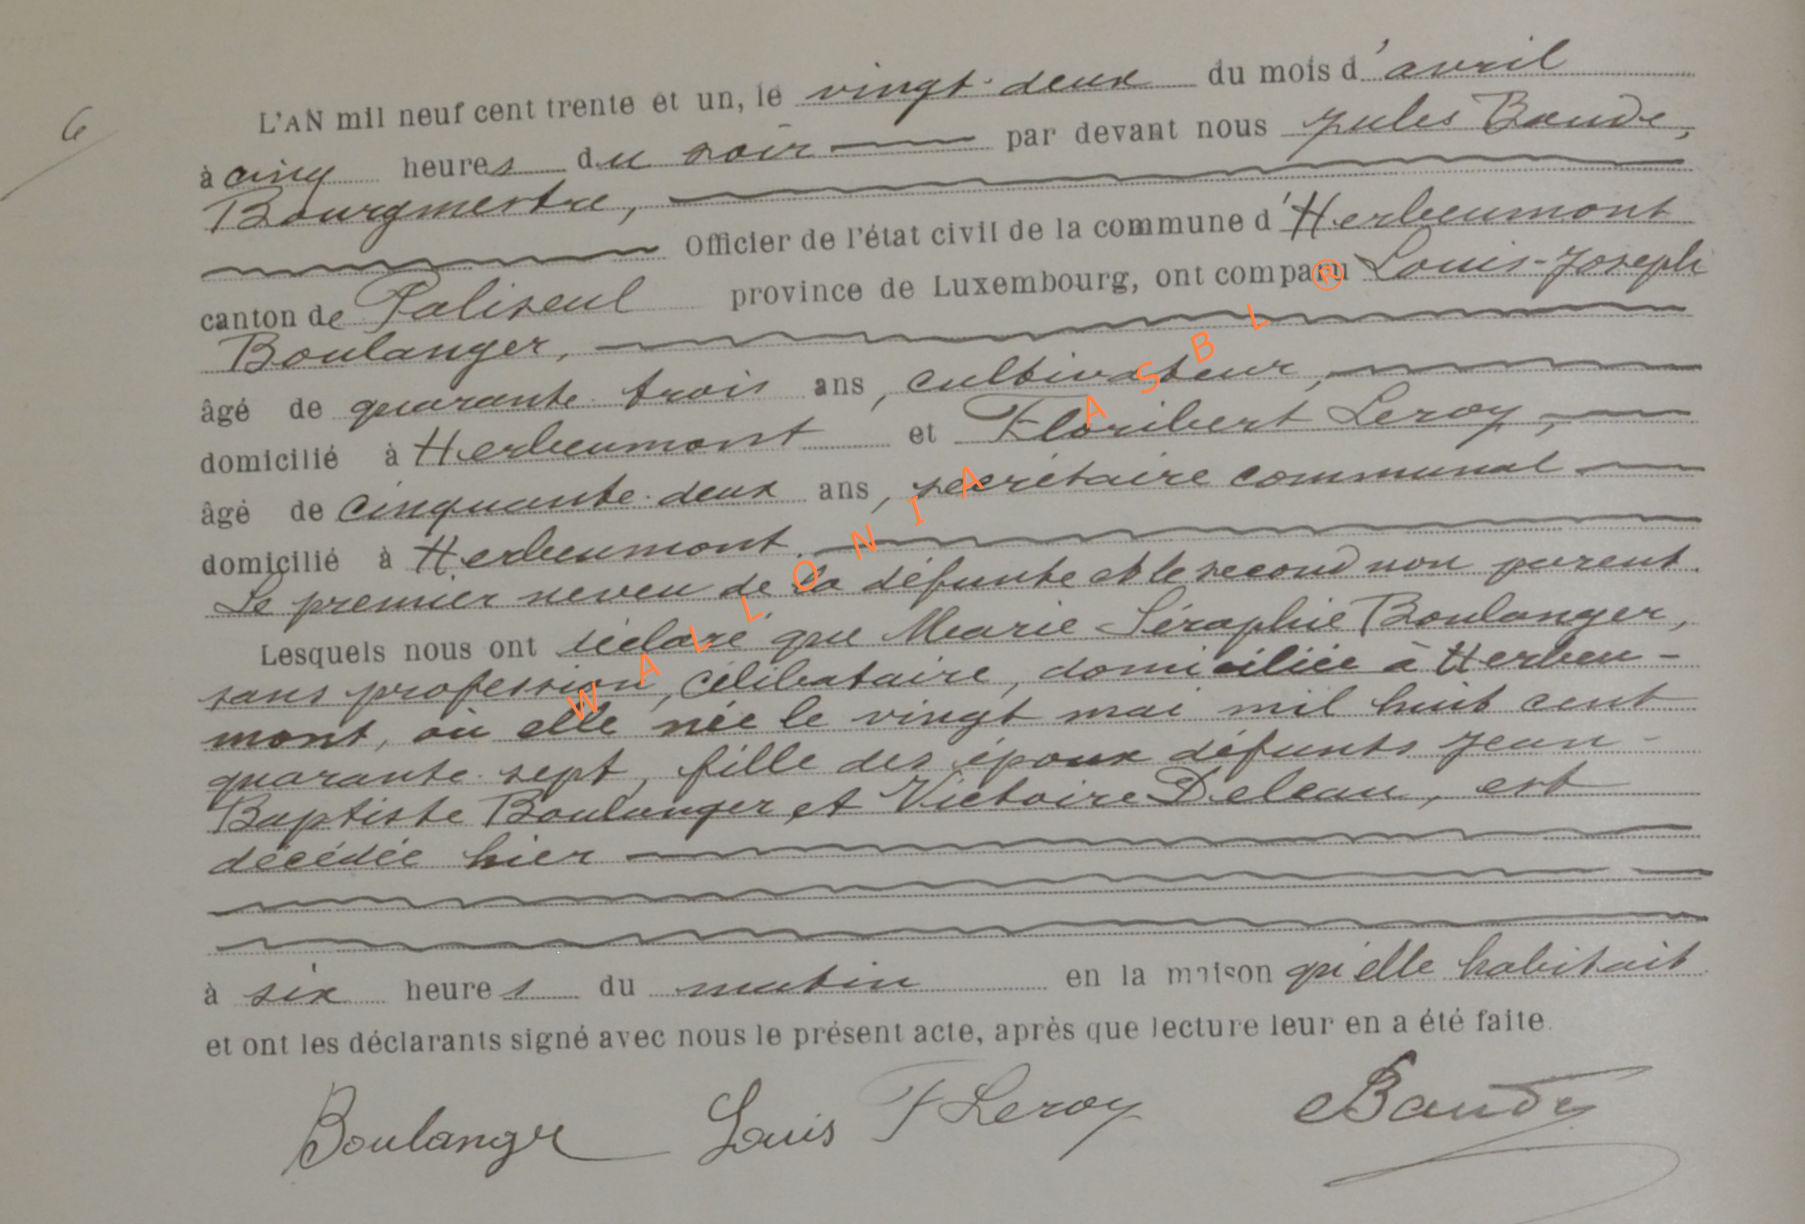 6
L'AN mil neuf cent trente et un, le vingt-deux du mois d'avril
à cinq heures du soir par devant nous Jules Baude,
Bourgmestre,
Officier de l'état civil de la commune d'Herbeumont
canton de Paliseul province de Luxembourg, ont comparu Louis-Joseph
Boulanger,
âgé de quarante-trois ans, cultivateur,
domicilié à Herbeumont et Floribert Leroy,
âgé de cinquante-deux ans, secrétaire communal
domicilié à Herbeumont.
Le premier neveu de la défunte et le second non parent.
Lesquels nous ont déclaré que Marie Séraphie Boulanger,
sans profession, célibataire, domiciliée à Herbeu-
mont, où elle née le vingt mai mil huit cent
quarante-sept, fille des époux défunts Jean-
Baptiste Boulanger et Victoire Deleau, est
décédée hier
à six heures du matin en la maison qu'elle habitait
et ont les déclarants signé avec nous le présent acte, après que lecture leur en a été faite.
Boulanger Louis F Leroy Baude
WALLONIA ASBL ®